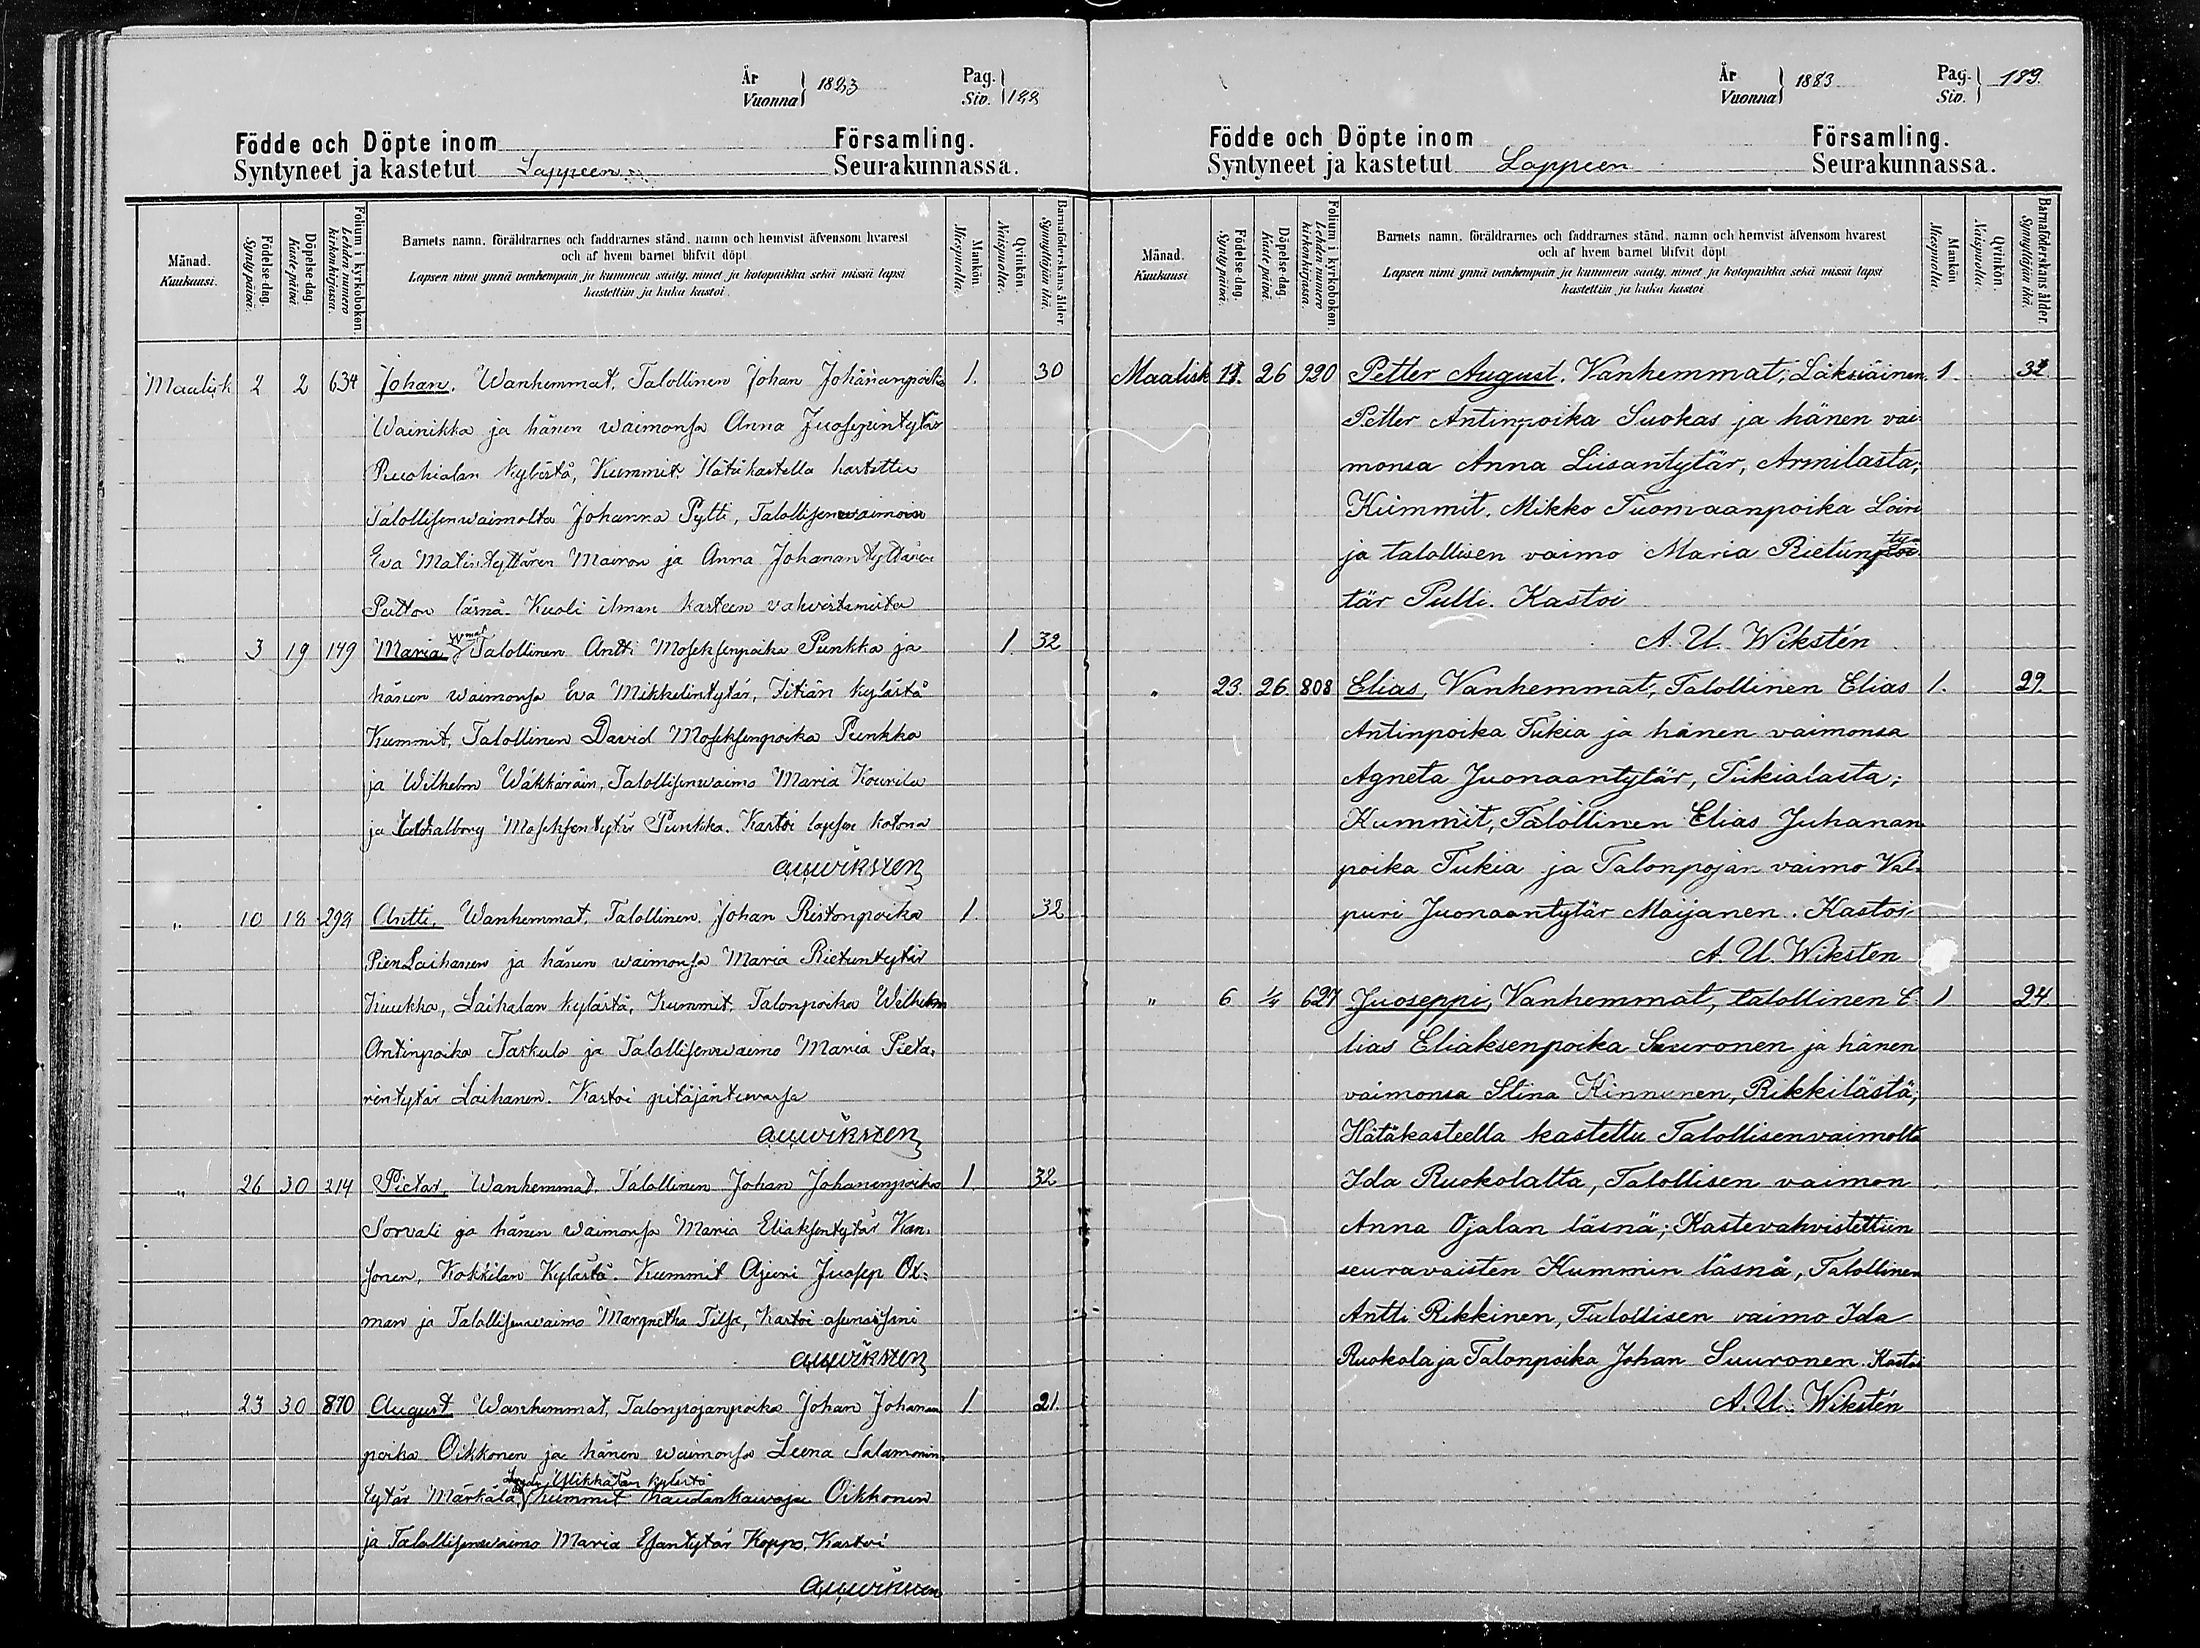 År
Vuonna } 1883
Pag.
Siv. } 188
Födde och Döpte inom Församling.
Syntyneet ja kastetut Lappeen Seurakunnassa.
Månad.
Kuukausi.
Födelse-dag.
Synty päivä.
Döpelse-dag.
Kaste päivä.
Folium i kyrkoboken.
Lehden numero kirkonkirjassa.
Barnets namn, föräldrarnes och faddrarnes stånd, namn och hemvist äfvensom hvarest
och af hvem barnet blifvit döpt
Lapsen nimi ynnä vanhempain ja kummein sääty, nimet ja kotopaikka sekä missä lapsi
kastettiin ja kuka kastoi
Mankön
Miespuolia.
Qvinkön.
Naispuolia.
Barnaföderskans ålder.
Synnyttäjän ikä.
Maalisk 2 2 634 Johan. Wanhemmat, Talollinen Johan Johananpoika 1. 30
Wainikka ja hänen waimonsa Anna Juosepintytär
Ruohialan kylästä, Kummit. Hätäkastella kastettu
Talollisenwaimolta Johanna Pytti, Talollisenwaimoin
Eva Matintyttären Mairon ja Anna Johanantyttären
Peiton läsnä. Kuoli ilman kasteen vahvistamista
" 3 19 149 Maria Wmat Talollinen Antti Moseksenpoika Punkka ja 1 32
hänen waimonsa Eva Mikkelintytär, Itiän kylästä
Kummit, Talollinen David Moseksenpoika Punkka
ja Wilhelm Wäkkäräin, Talollisenwaimo Maria Kourila
ja Waldborg Moseksentytär Punkka. Kastoi lapsen kotona
A U Wiksten
" 10 18 299 Antti, Wanhemmat, Talollinen Johan Ristonpoika 1 32
Pien Laihanen ja hänen waimonsa Maria Rietuntytär
Kuukka, Laihalan kylästä, Kummit, Talonpoika Wilhelm
Antinpoika Tarkula ja Talollisenwaimo Maria Pieta-
rintytär Laihanen. Kastoi pitäjäntuvassa
A U Wiksten
" 26 30 214 Pietar, Wanhemmat, Talollinen Johan Johananpoika 1 32
Sorvali ja hänen waimonsa Maria Eliaksentytär Kan-
sonen, Kokkilan Kylästä. Kummit Ajuri Juosep Ot-
man ja Talollisenwaimo Margretha Tilsa, Kastoi asunnissani
A U Wiksten
" 23 30 870 August Wanhemmat, Talonpojanpoika Johan Johanan 1 21
poika Oikkonen ja hänen waimonsa Leena Salamonin
Mikkälän kylästä
tytär Märkälä Kummit haudankaivaja Oikkonen
ja Talollisenwaimo Maria Esantytär Koppo, Kastoi
A U Wiksten
År
Vuonna } 1883
Pag.
Siv. } 189.
Födde och Döpte inom Församling.
Syntyneet ja kastetut Lappeen Seurakunnassa.
Månad.
Kuukausi
Födelse-dag.
Synty päivä.
Döpelse-dag.
Kaste päivä.
Folium i kyrkoboken.
Lehden numero kirkonkirjassa.
Barnets namn, föräldrarnes och faddrarnes stånd, namn och hemvist äfvensom hvarest
och af hvem barnet blifvit döpt
Lapsen nimi ynnä vanhempain ja kummein sääty, nimet ja kotopaikka sekä missä lapsi
kastettiin ja kuka kastoi
Mankön
Miespuolia.
Qvinkön.
Naispuolia.
Barnaföderskans ålder.
Synnyttäjän ikä.
Maalisk 11. 26 920 Petter August. Vanhemmat, Läksiäinen 1. 32.
Petter Antinpoika Suokas ja hänen vai-
monsa Anna Liisantytär, Armilasta;
Kummit. Mikko Tuomaanpoika Loiri
ja talollisen vaimo Maria Rietun ty-
tär Pulli. Kastoi
A. U. Wikstén
" 23. 26 808 Elias, Vanhemmat, Talollinen Elias 1. 29.
Antinpoika Tukia ja hänen vaimonsa
Agneta Juonaantytär, Tukialasta;
Kummit, Talollinen Elias Juhanan
poika Tukia ja Talonpojan vaimo Val-
puri Juonaantytär Maijanen. Kastoi
A. U. Wiksten
" 6 1/4 627 Juoseppi, Vanhemmat, talollinen E- 1 24.
lias Eliaksenpoika Suuronen ja hänen
vaimonsa Stina Kinnunen, Rikkilästä;
Hätäkasteella kastettu Talollisenvaimolta
Ida Ruokolalta, Talollisen vaimon
Anna Ojalan läsnä; Kastevahvistettiin
seuravaisten Kummin läsnä, Talollinen
Antti Rikkinen, Talollisen vaimo Ida
Ruokola ja Talonpoika Johan Suuronen. Kastoi
A. U. Wikstén